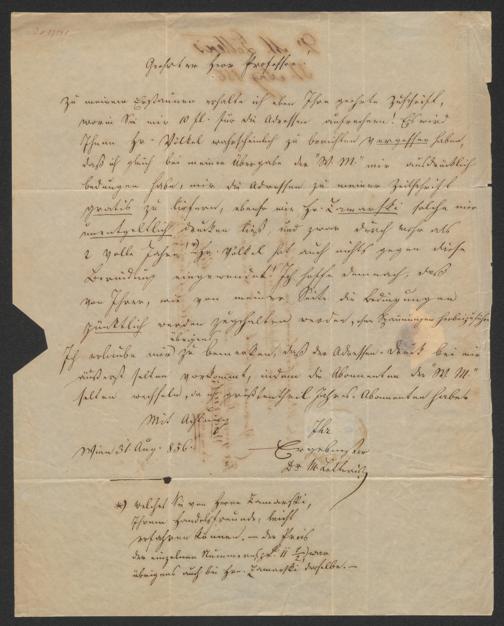 Geehrter Herr Professor
Zu meinem Erstaunen erhalte ich eben Ihre geehrte Zuschrift,
worin Sie mir 10 fl. für die Adressen anrechnen! Es wird
Ihnen Hr. Völkel wahrscheinlich zu berichten vergessen haben,
daß ich gleich bei meiner Übergabe des "W. M." mir ausdrücklich
bedungen habe, mir die Adressen zu meiner Zeitschrift
gratis zu liefern, ebenso wie Hr. Zamarski solche mir
unentgeltlich drucken ließ, und zwar durch mehr als
2 volle Jahre. Hr. Völkel hat auch nichts gegen diese
Bemerkung eingewendet! Ich hoffe demnach, daß
von Ihrer, wie von meiner Seite die Bedingungen
pünktlich werden zugehalten werden,
Ich erlaube mir übrigens zu bemerken, daß der Adressen-Druck bei mir
äußerst selten vorkommt, indem die Abonnenten des "W. M."
selten wechseln, da ich größtentheil Jahres-Abonnenten habe.
Mit Achtung
Ihr
Wien 31 Aug. 856.
Ergebenster
Dr. M Letteris
*) welches Sie von Herrn Zamarski,
Ihrem Handelsfreunde, leicht
erfahren können. — der Preis
der einzelnen Nummern war
übrigens auch bei Hrn. Zamarski derselbe. —